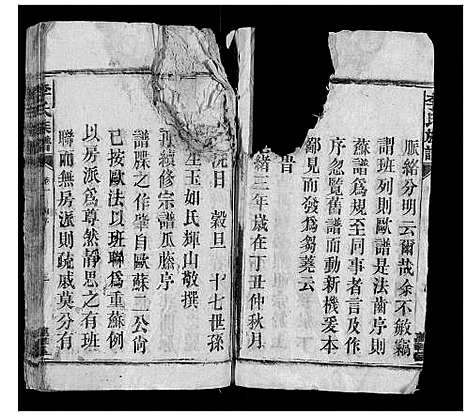 脈絡分明云爾哉余不敏竊
謂班列則歐譜是法蘭序則
蘇譜爲規至同事者言及作
序忽覽舊譜而動新機爰本
鄙見而發爲芻蕘云
昔
緒三年歲在丁丑仲秋月
浣日 穀旦 十七世孫
生玉如氏輝山敬撰
續修宗譜瓜滕序
譜牒之作肇自歐蘇二公尚
已按歐法以班聯爲重蘇例
以房派爲尊然靜思之有班
聯而無房派則疏戚莫分有
李氏族譜